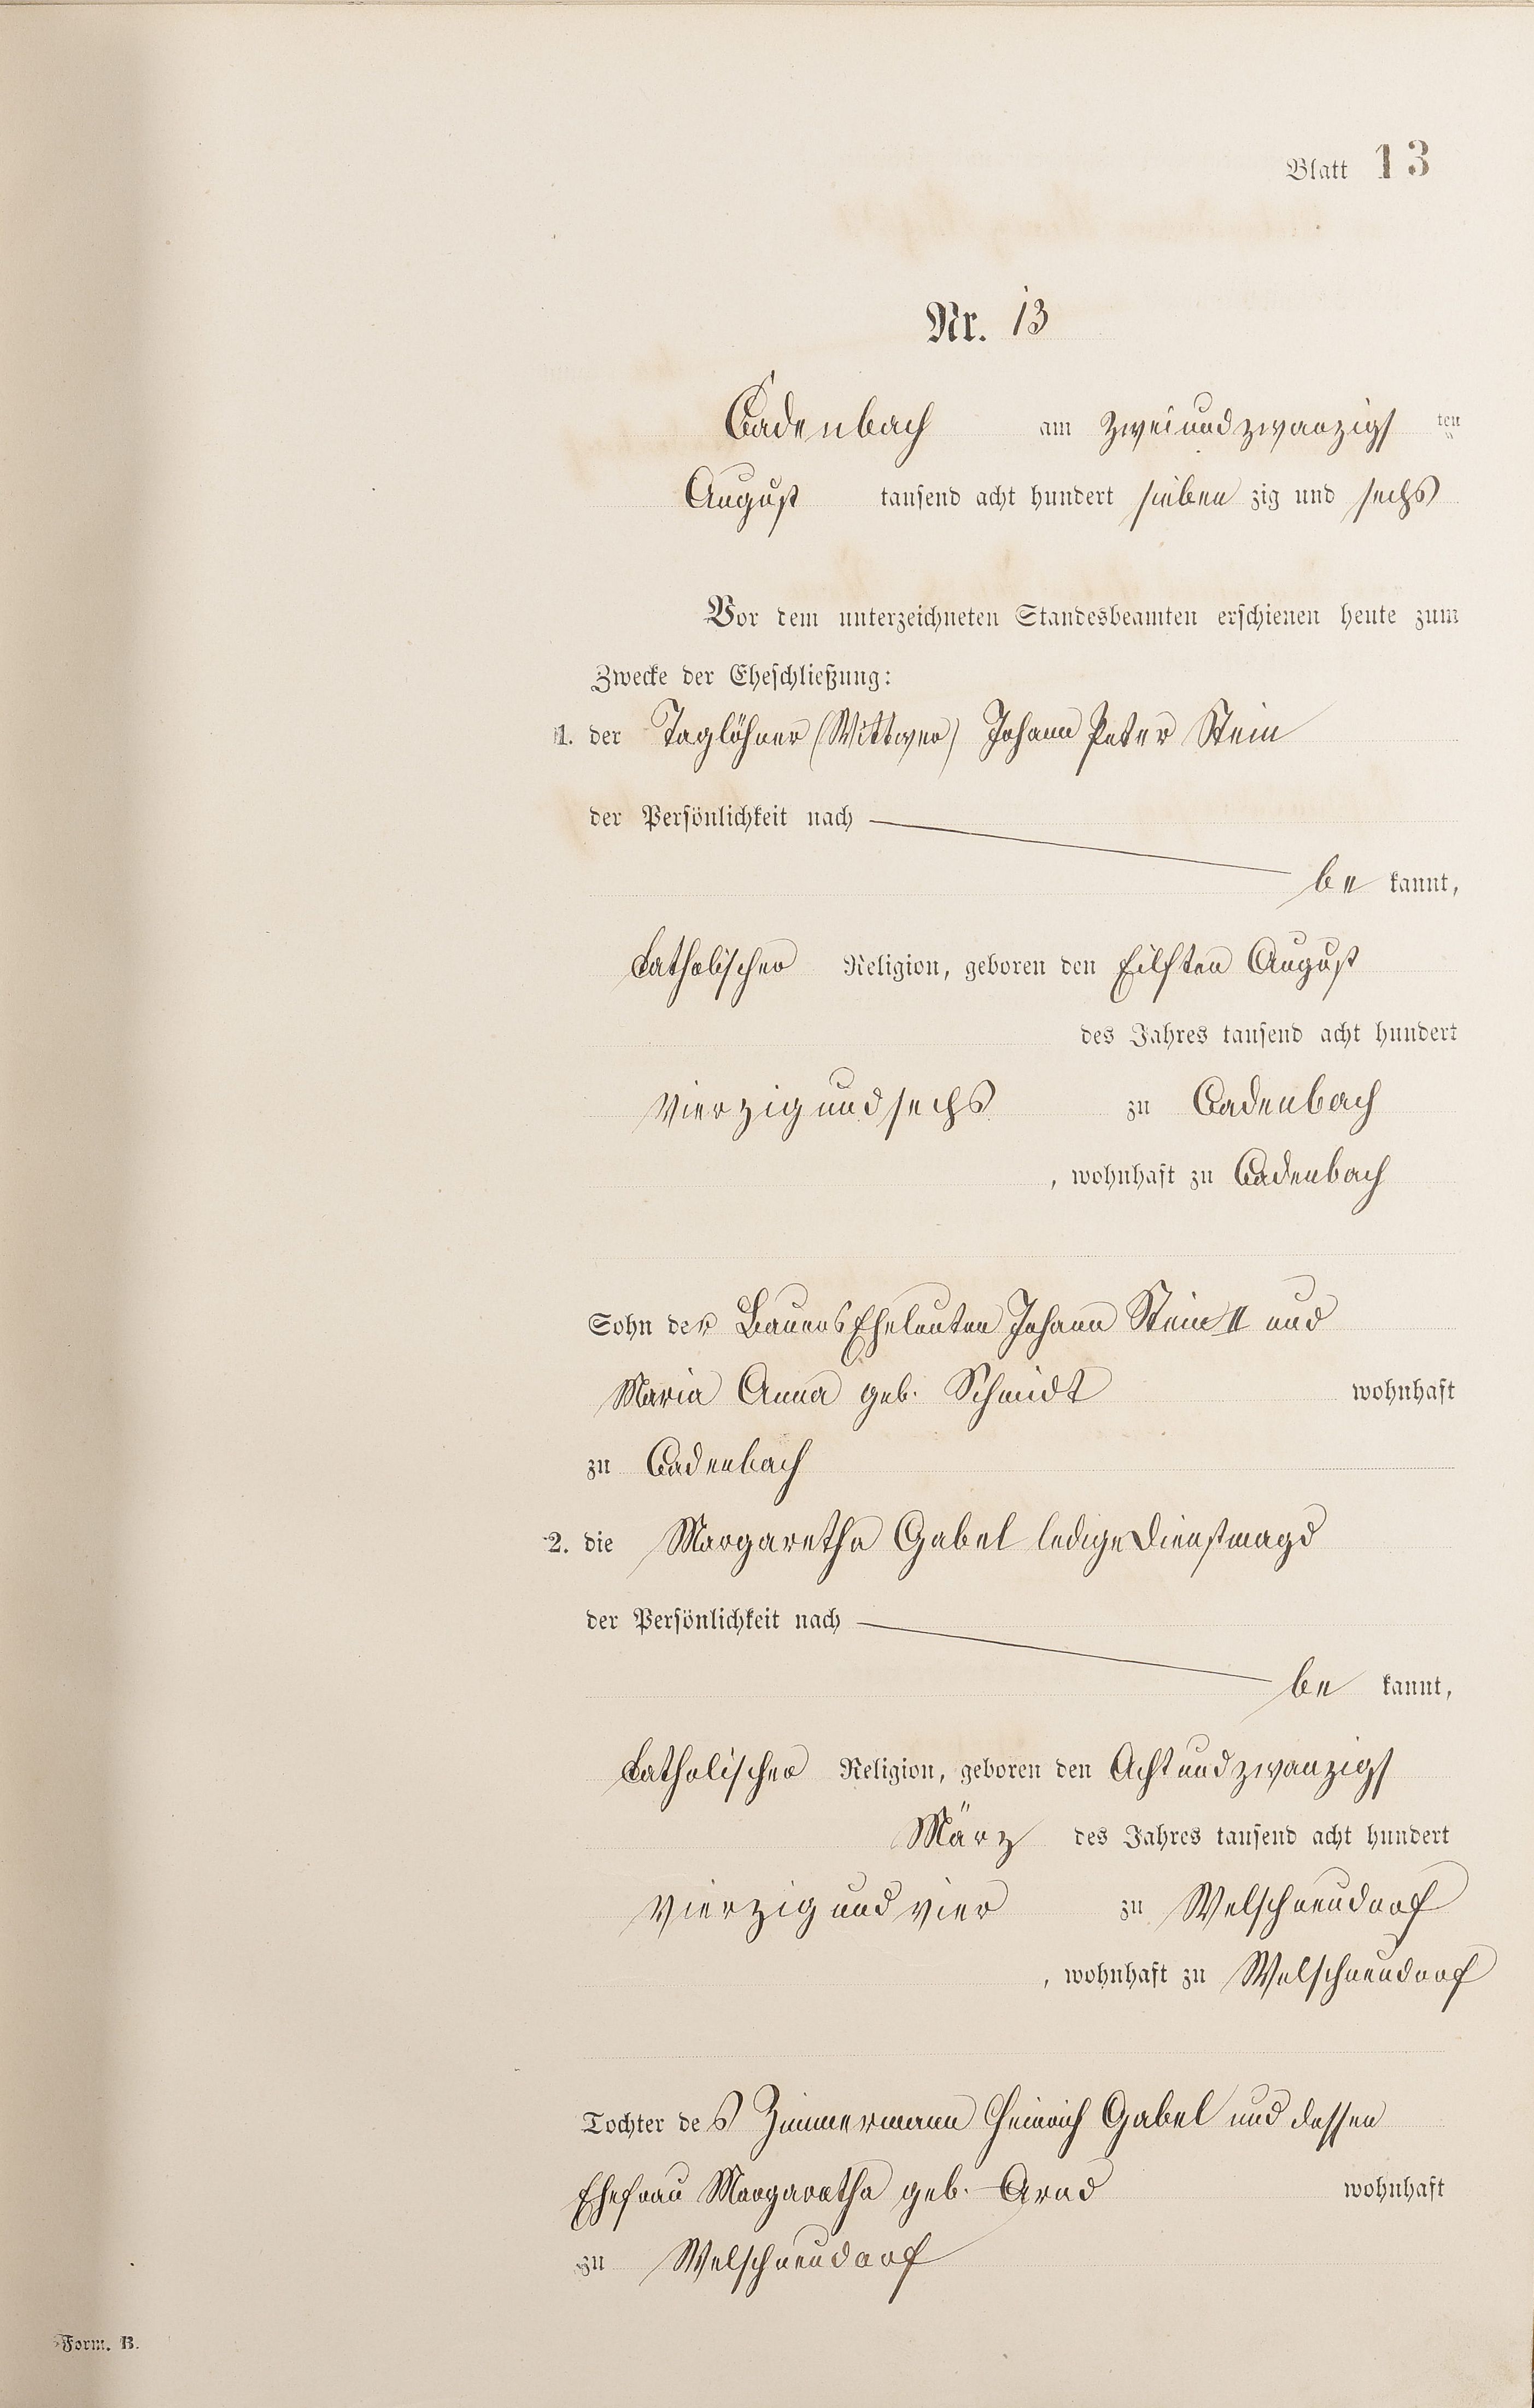 Blatt 13
Nr. 13
Cadenbach am zweiundzwanzigs ten
August tausend acht hundert sieben zig und sechs
Vor dem unterzeichneten Standesbeamten erschienen heute zum
Zwecke der Eheschließung:
1. der Taglöhner (Wittwer) Johann Peter Stein
der Persönlichkeit nach
be kannt,
katholischer Religion, geboren den Eilften August
des Jahres tausend acht hundert
vierzig und sechs zu Cadenbach
, wohnhaft zu Cadenbach
Sohn der Bauers Eheleuten Johann Stein II und
Maria Anna geb. Schmidt wohnhaft
zu Cadenbach
2. die Margaretha Gabel ledige Dienstmagd
der Persönlichkeit nach
be kannt,
katholischer Religion, geboren den Acht und zwanzigs
März des Jahres tausend acht hundert
vierzig und vier zu Welschneudorf
, wohnhaft zu Welschneudorf
Tochter des Zimmermann Heinrich Gabel und dessen
Ehefrau Margaretha geb. Arnd wohnhaft
zu Welschneudorf
Form. B.